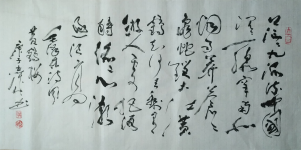 茫茫九派流中国
沉沉一线穿南北
烟雨莽苍苍
龟蛇锁大江黄
鹤知何去剩有
游人处把酒
酹滔滔心潮
逐浪高
黄鹤楼
庚子